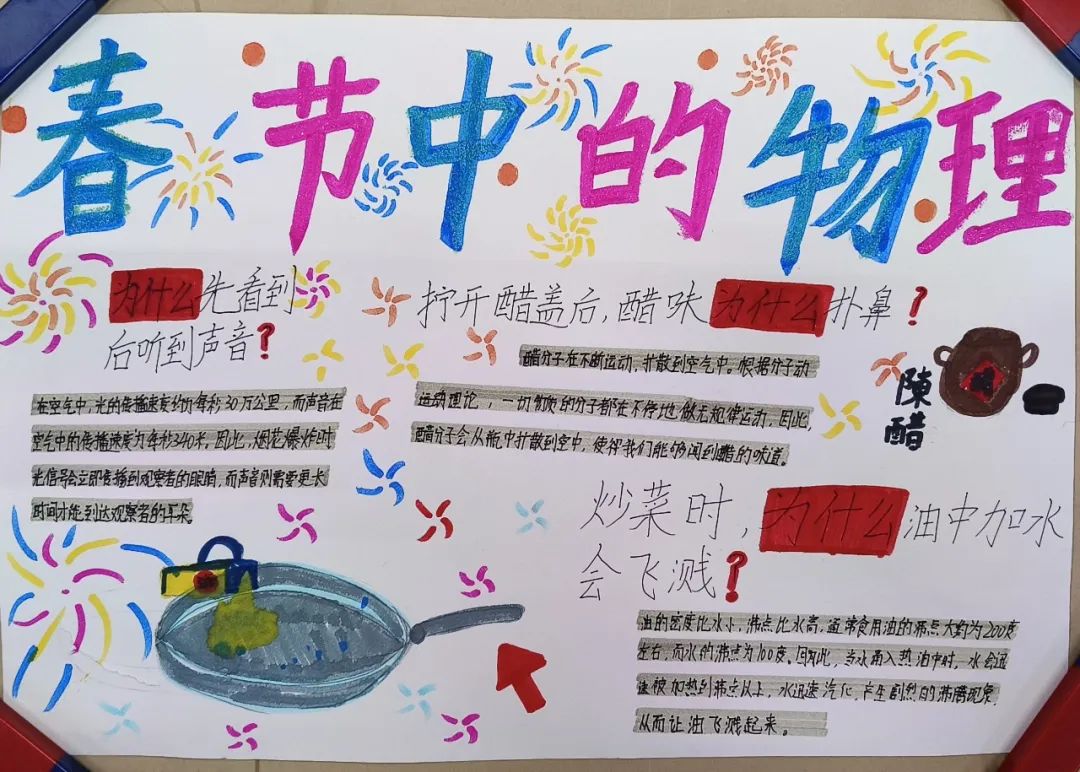 春节中的物理
为什么先看到
后听到声音?
在空气中,光的传播速度约为每秒30万公里,而声音在
空气中的传播速度为每秒340米。因此,烟花爆炸时
光信号会立即传播到观察者的眼睛,而声音则需要更长
时间才能到达观察者的耳朵。
拧开醋盖后,醋味为什么扑鼻?
醋分子在不断运动,扩散到空气中。根据分子动
运动理论,一切物质的分子都在不停地做无规律运动,因此,
醋分子会从瓶中扩散到空中,使得我们能够闻到醋的味道。
陳醋
炒菜时,为什么油中加水
会飞溅?
油的密度比水小,沸点比水高,通常食用油的沸点大约为200度
左右,而水的沸点为100度。因此,当水滴入热油中时,水会迅
速被加热到沸点以上,水迅速汽化,产生剧烈的沸腾现象,
从而让油飞溅起来。